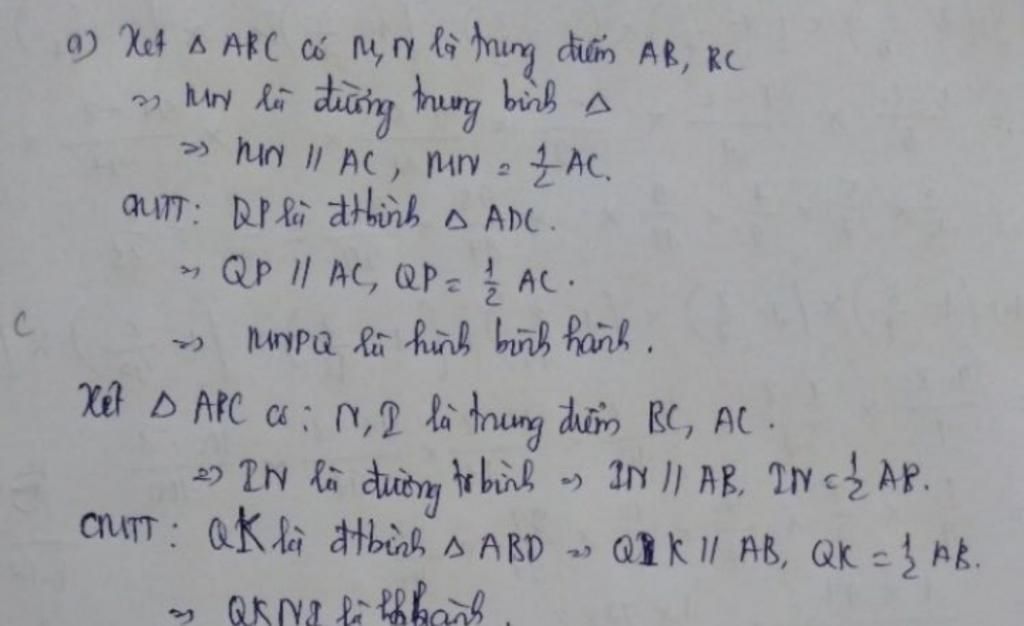 a) Xét Δ ABC có M, N là trung điểm AB, BC
=> MN là đường trung bình Δ
=> MN // AC, MN = 1/2 AC.
CMTT: QP là đtbình Δ ADC.
=> QP // AC, QP = 1/2 AC.
C
=> MNPQ là hình bình hành.
Xét Δ ABC có: N, I là trung điểm BC, AC.
=> IN là đường trbình => IN // AB, IN = 1/2 AB.
CMTT: QK là đtbình Δ ABD => QK // AB, QK = 1/2 AB.
=> QKNI là hbhành.